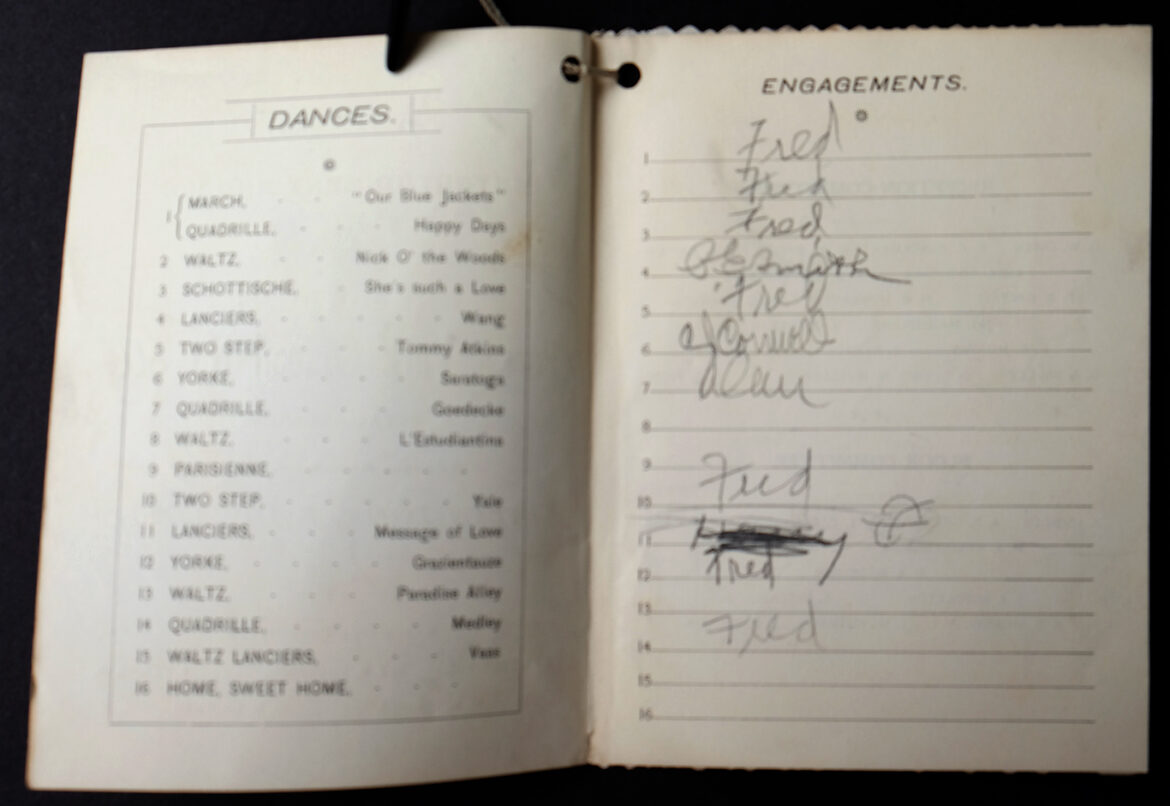 DANCES.
1 { MARCH, "Our Blue Jackets"
QUADRILLE, Happy Days
2 WALTZ, Nick O' the Woods
3 SCHOTTISCHE, She's such a Love
4 LANCIERS, Wang
5 TWO STEP, Tommy Atkins
6 YORKE, Saratoga
7 QUADRILLE, Goedecke
8 WALTZ, L'Estudiantina
9 PARISIENNE,
10 TWO STEP, Yale
11 LANCIERS, Message of Love
12 YORKE,
13 WALTZ, Paradise Alley
14 QUADRILLE, Medley
15 WALTZ LANCIERS,
16 HOME, SWEET HOME,
ENGAGEMENTS.
1 Fred
2 Fred
3 Fred
4
5 Fred
6
7
8
9
10 Fred
11
12 Fred
13
14 Fred
15
16